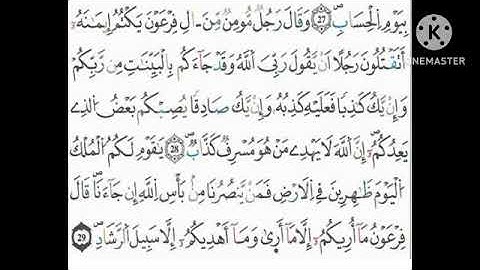 بِيَوْمِ اِ۬لْحِسَابِۖ 27 وَقَالَ رَجُلٞ مُّومِنٞ مِّنَ اٰلِ فِرْعَوْنَ يَكْتُمُ إِيمَٰنَهُۥٓ
أَتَقْتُلُونَ رَجُلاً اَنْ يَّقُولَ رَبِّيَ اَ۬للَّهُ وَقَدْ جَآءَكُم بِالْبَيِّنَٰتِ مِن رَّبِّكُمْ
وَإِنْ يَّكُ كَٰذِباٗ فَعَلَيْهِ كَذِبُهُۥ وَإِنْ يَّكُ صَادِقاٗ يُصِبْكُم بَعْضُ اُ۬لذِے
يَعِدُكُمُۥٓ إِنَّ اَ۬للَّهَ لَا يَهْدِے مَنْ هُوَ مُسْرِفٞ كَذَّابٞۖ 28 يَٰقَوْمِ لَكُمُ اُ۬لْمُلْكُ
اُ۬لْيَوْمَ ظَٰهِرِينَ فِے اِ۬لَارْضِ فَمَنْ يَّنصُرُنَا مِنۢ بَأْسِ اِ۬للَّهِ إِن جَآءَنَاۖ قَالَ
فِرْعَوْنُ مَآ أُرِيكُمُۥٓ إِلَّا مَآ أَر۪يٰ وَمَآ أَهْدِيكُمُۥٓ إِلَّا سَبِيلَ اَ۬لرَّشَادِۖ 29
KINEMASTER